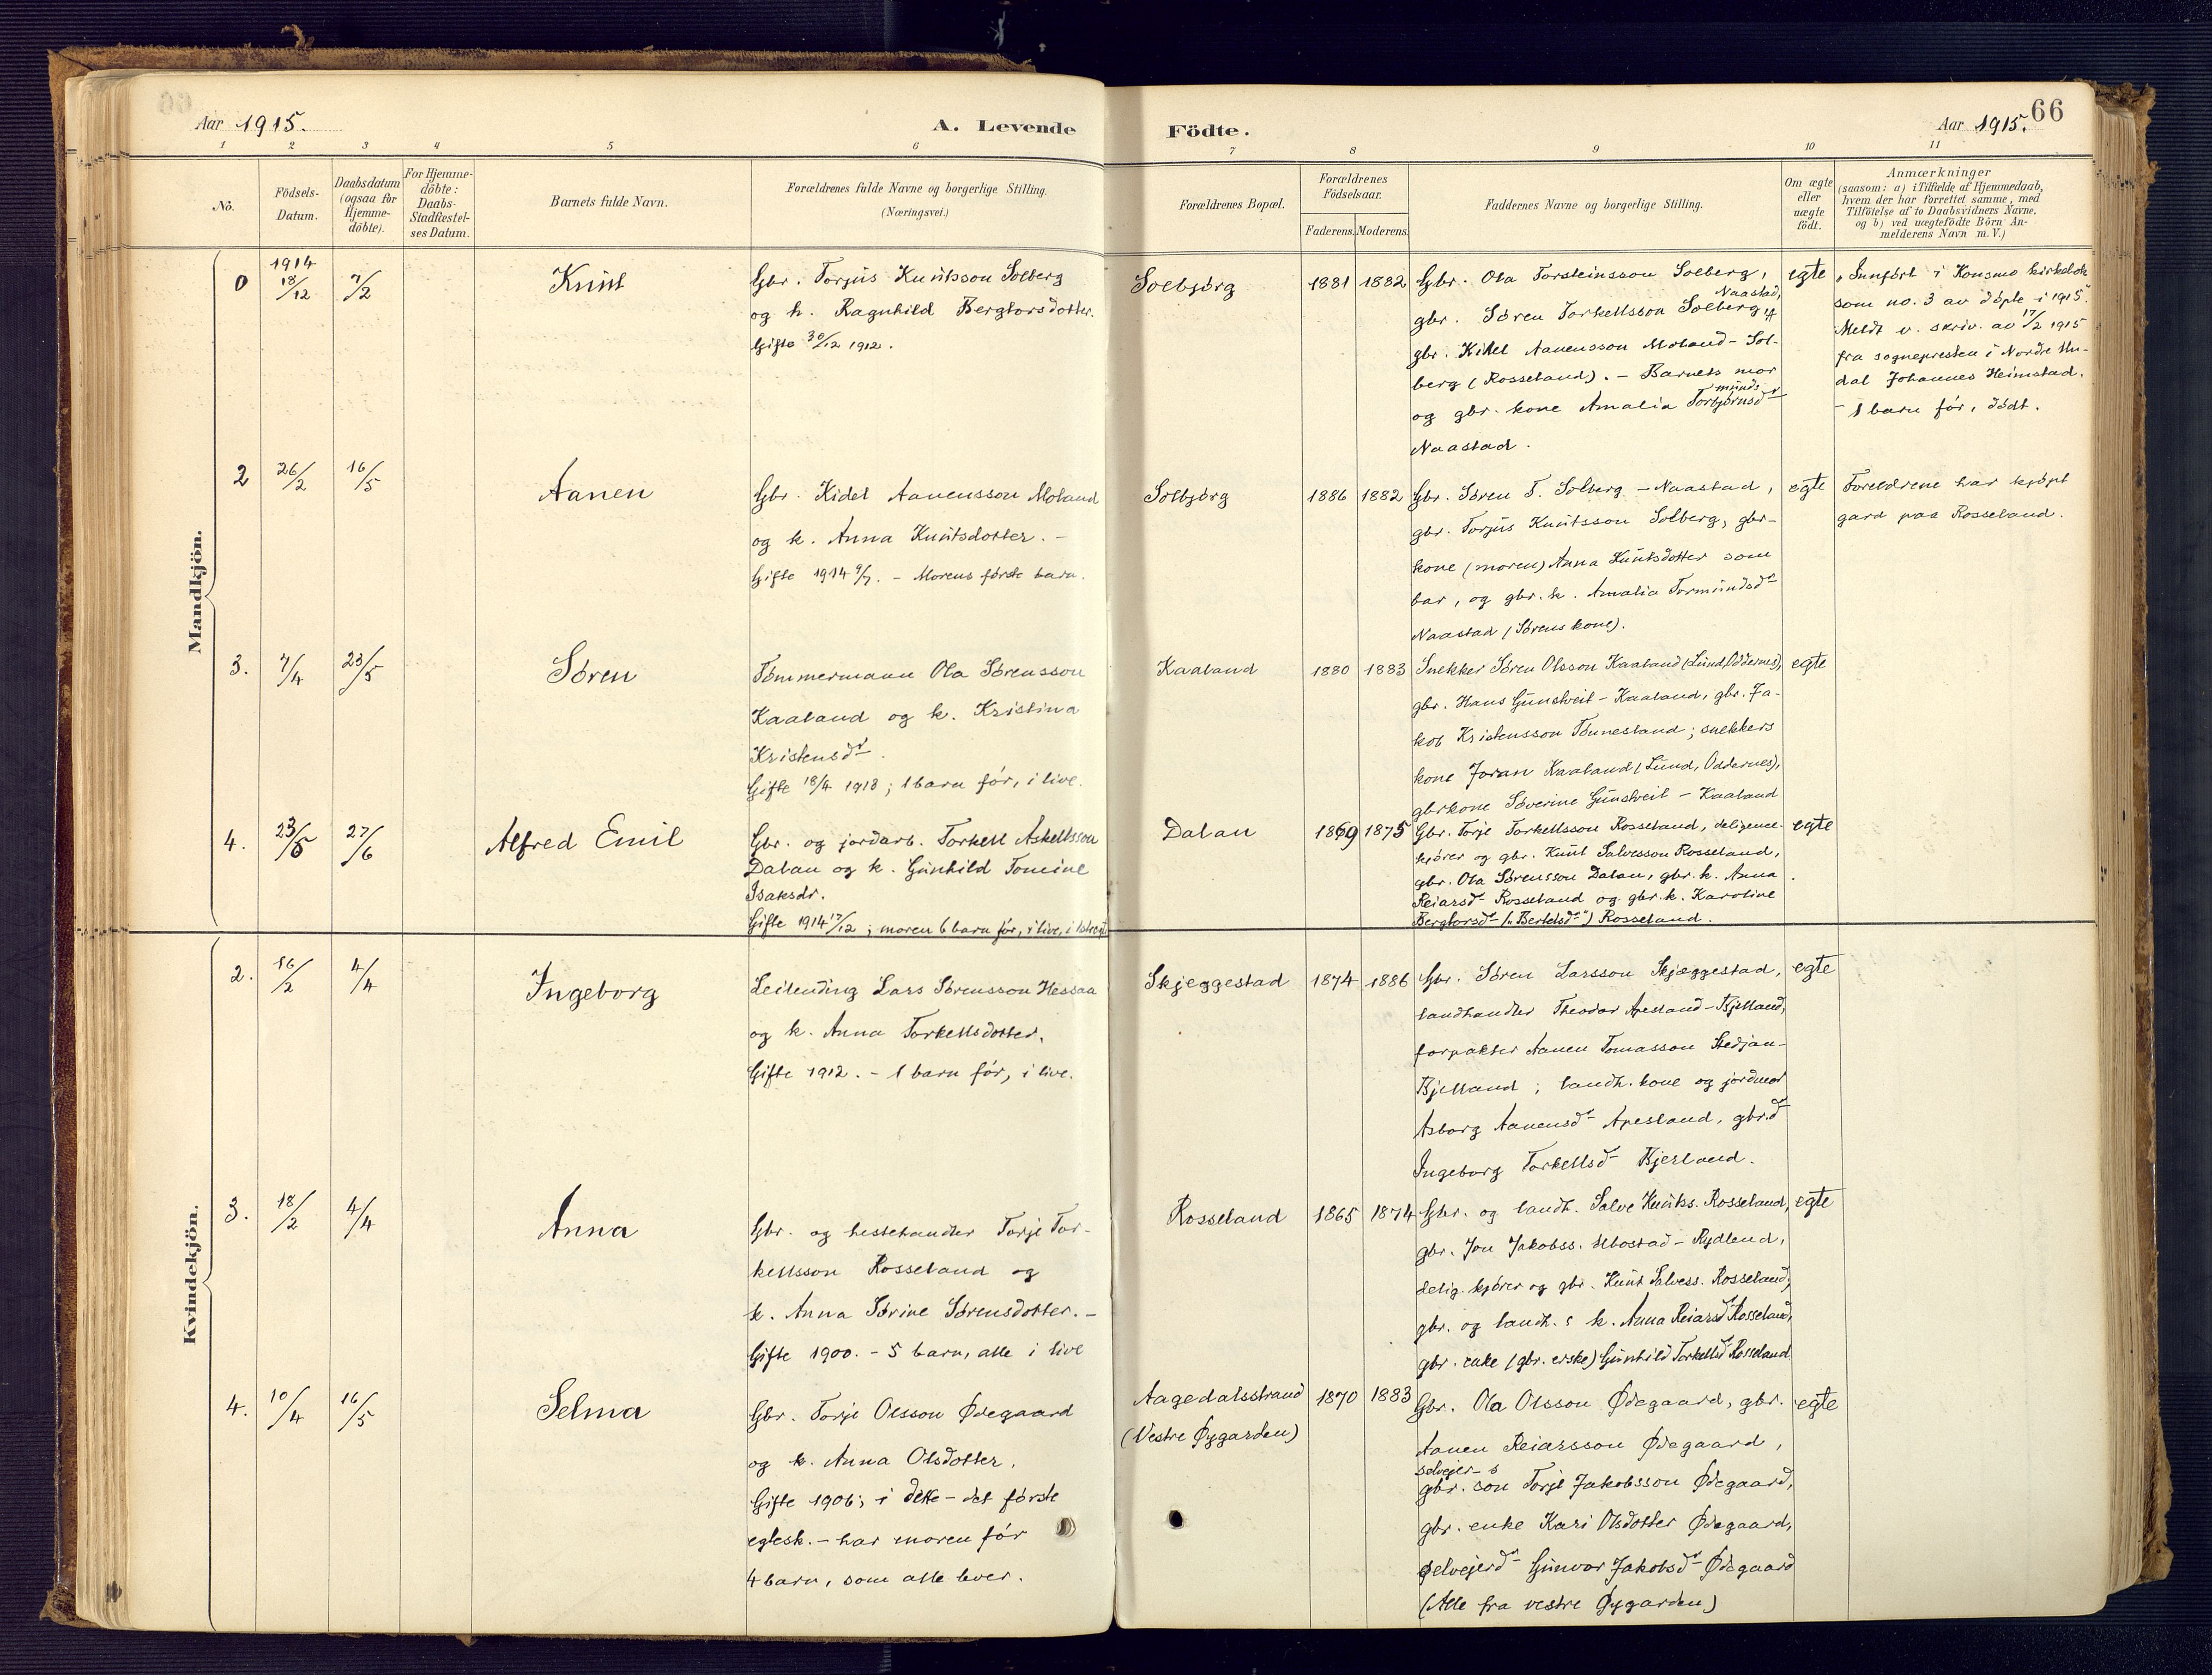 Aar 1915.
A. Levende
Födte.
Aar 1915.
66
1 2 3 4 5 6 7 8 9 10 11
No.
Födsels-
Datum.
Daabsdatum
(ogsaa for
Hjemme-
döbte).
For Hjemme-
döbte:
Daabs-
Stadfæstel-
ses Datum.
Barnets fulde Navn.
Forældrenes fulde Navne og borgerlige Stilling.
(Næringsvei.)
Forældrenes Bopæl.
Forældrenes
Födselsaar.
Faderens. Moderens.
Faddernes Navne og borgerlige Stilling.
Om ægte
eller
uægte
födt.
Anmærkninger
(saasom: a) i Tilfælde af Hjemmedaab,
hvem der har forrettet samme, med
Tilföielse af to Daabsvidners Navne,
og b) ved uægtefödte Börn An-
melderens Navn m. V.)
Mandkjön.
0
1914
18/12
7/2
Knut
Gbr. Torjus Knutsson Solberg
og k. Ragnhild Bergtorsdotter.
Gifte 30/12 1912.
Solbjørg
1881 1882
Gbr. Ola Torsteinsson Solberg,
Naastad,
gbr. Søren Torkellsson Solberg
gbr. Kidel Aanensson Moland - Sol-
berg (Rosseland). - Barnets mor
munds
og gbr. kone Amalia Torbjørnsdr
Naastad.
egte
"Innført i Konsmo kirkebok
som no. 3 av døpte i 1915".
Meldt v. skriv. av 17/2 1915
fra sognepresten i Nordre Un-
dal Johannes Heimstad.
- 1 barn før, dødt.
2
26/2
16/5
Aanen
Gbr. Kidel Aanensson Moland
og k. Anna Knutsdotter. -
Gifte 1914 9/7. - Morens første barn.
Solbjørg
1886 1882
Gbr. Søren T. Solberg - Naastad,
gbr. Torjus Knutsson Solberg, gbr-
kone (moren) Anna Knutsdotter som
bar, og gbr. k. Amalia Tormundsdr
Naastad (Sørens kone).
egte
Foreldrene har kjøpt
gard paa Rosseland.
3.
7/4
23/5
Søren
Tømmermann Ola Sørensson
Kaaland og k. Kristina
Kristensdr.
Gifte 18/4 1913; 1 barn før, i live.
Kaaland
1880 1883
Snekker Søren Olsson Kaaland (Lund, Oddernes),
gbr. Hans Gunstveit - Kaaland, gbr. Ja-
kob Kristensson Tønnesland; snekkers
kone Joran Kaaland (Lund, Oddernes),
gbrkone Severine Gunstveit - Kaaland
egte
4.
23/5
27/6
Alfred Emil
Gbr. og jordarb. Torkell Askellsson
Dalan og k. Gunhild Tomine
Isaksdr.
Gifte 1914 17/12; moren 6 barn før, i live,
Dalan
1869 1875
Gbr. Torje Torkellsson Rosseland, deligence-
kjører og gbr. Knut Salvesson Rosseland,
gbr. Ola Sørensson Dalan, gbr. k. Anna
Reiarsdr Rosseland og gbr. k. Karoline
Bergtorsdr ("Bertelsdr") Rosseland.
egte
Kvindekjön.
2.
16/2
4/4
Ingeborg
Leilending Lars Sørensson Hessaa
og k. Anna Torkellsdotter.
Gifte 1912. - 1 barn før, i live.
Skjeggestad
1874 1886
Gbr. Søren Larsson Skjæggestad,
landhandler Theodor Apesland - Bjelland,
forpakter Aanen Tomasson Stedjan-
Bjelland; landh. kone og jordmor
Asborg Aanensdr Apesland, gbr.dr
Ingeborg Torkellsdr Bjerland.
egte
3.
18/2
4/4
Anna
Gbr. og hestehandler Torje Tor-
kellsson Rosseland og
k. Anna Sørine Sørensdotter. -
Gifte 1900. - 5 barn, alle i live
Rosseland
1865 1874
Gbr. og landh. Salve Knutss. Rosseland,
gbr. Jon Jakobss. Ubostad - Rydlend,
delig. kjører og gbr. Knut Salvess. Rosseland,
gbr. og landh. s k. Anna Reiarsdr Rosseland,
gbr. enke (gbr. erske) Gunhild Torkellsdr Rosseland
egte
4.
10/4
16/5
Selma
Gbr. Torje Olsson Ødegaard
og k. Anna Olsdotter.
Gifte 1906; i dette - det første
eglesk. - har moren før
4 barn, som alle lever.
Aagedalsstrand
(Vestre Øygarden)
1870 1883
Gbr. Ola Olsson Ødegaard, gbr.
Aanen Reiarsson Ødegaard,
selvejer-s
gbr. son Torje Jakobsson Ødegaard,
gbr. enke Kari Olsdotter Ødegaard,
selvejerdr Gunvor Jakobsdr Ødegaard
(Alle fra vestre Øygarden)
egte